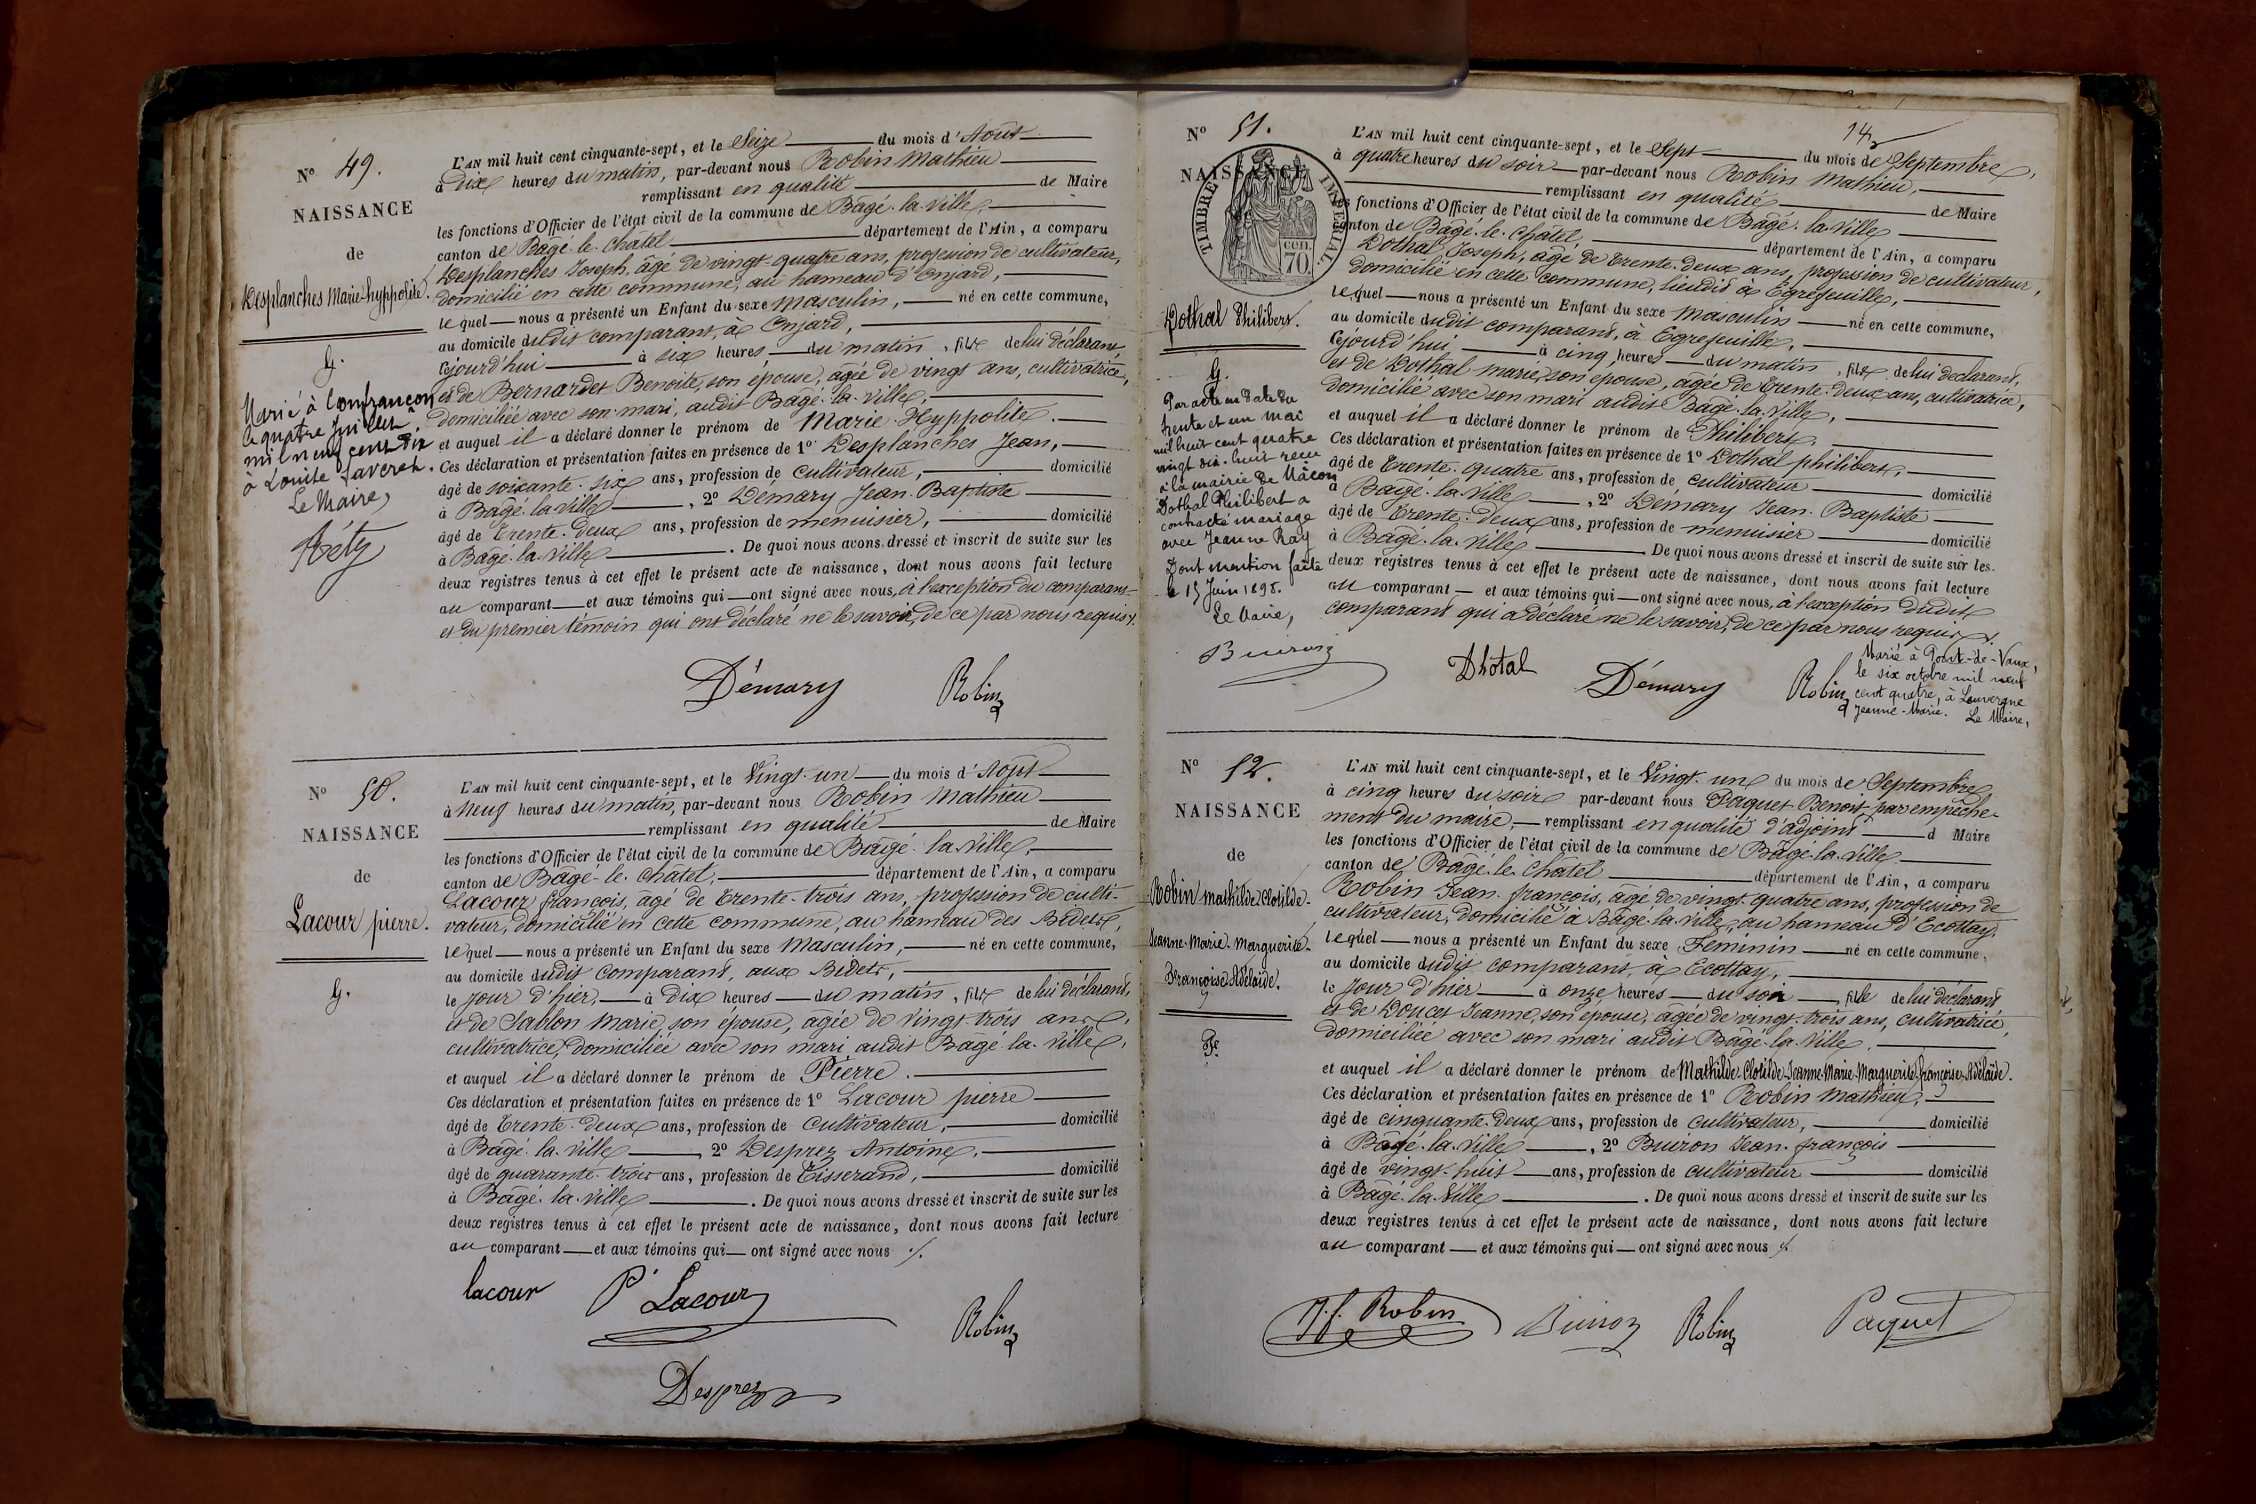 N° 49.
NAISSANCE
de
Desplanches Marie-hyppolite.
G.
Marié à Confrançon
le quatre Juillet
mil neuf cent dix
à Louise Taveret.
Le Maire,
L'AN mil huit cent cinquante-sept, et le Seize du mois d'Août
à Dix heures du matin, par-devant nous Robin Mathieu
remplissant en qualité de Maire
les fonctions d'Officier de l'état civil de la commune de Bâgé-la-Ville,
canton de Bâgé-le-Châtel département de l'Ain, a comparu
Desplanches Joseph, âgé de vingt-quatre ans, profession de cultivateur,
domicilié en cette commune, au hameau d'Onjard,
lequel nous a présenté un Enfant du sexe masculin, né en cette commune,
au domicile dudit comparant, à Onjard,
cejourd'hui à six heures du matin, fils de lui déclarant
et de Bernardet Benoite, son épouse, âgée de vingt ans, cultivatrice,
domiciliée avec son mari, audit Bâgé-la-Ville,
et auquel il a déclaré donner le prénom de Marie-Hyppolite.
Ces déclaration et présentation faites en présence de 1° Desplanches Jean,
âgé de soixante-six ans, profession de cultivateur, domicilié
à Bâgé-la-Ville, 2° Démary Jean-Baptiste
âgé de Trente-deux ans, profession de menuisier, domicilié
à Bâgé-la-Ville. De quoi nous avons dressé et inscrit de suite sur les
deux registres tenus à cet effet le présent acte de naissance, dont nous avons fait lecture
au comparant et aux témoins qui ont signé avec nous, à l'exception du comparant
et du premier témoin qui ont déclaré ne le savoir, de ce par nous requis.
Démary Robin
N° 50.
NAISSANCE
de
Lacour pierre.
G.
L'AN mil huit cent cinquante-sept, et le Vingt-un du mois d'Août
à Neuf heures du matin, par-devant nous Robin Mathieu
remplissant en qualité de Maire
les fonctions d'Officier de l'état civil de la commune de Bâgé-la-Ville,
canton de Bâgé-le-Châtel, département de l'Ain, a comparu
Lacour françois, âgé de Trente-trois ans, profession de culti-
vateur, domicilié en cette commune, au hameau des Bidets,
lequel nous a présenté un Enfant du sexe Masculin, né en cette commune,
au domicile dudit comparant, aux Bidets,
le jour d'hier, à Dix heures du matin, fils de lui déclarant,
et de Sablon Marie, son épouse, âgée de Vingt-trois ans,
cultivatrice, domiciliée avec son mari audit Bâgé-la-Ville,
et auquel il a déclaré donner le prénom de Pierre.
Ces déclaration et présentation faites en présence de 1° Lacour pierre
âgé de Trente-deux ans, profession de Cultivateur, domicilié
à Bâgé-la-Ville, 2° Desprez Antoine,
âgé de quarante-trois ans, profession de Tisserand, domicilié
à Bâgé-la-Ville. De quoi nous avons dressé et inscrit de suite sur les
deux registres tenus à cet effet le présent acte de naissance, dont nous avons fait lecture
au comparant et aux témoins qui ont signé avec nous
lacour P. Lacour Robin
Desprez
14
N° 51.
NAISSANCE
TIMBRE IMPERIAL
70 cen.
Dothal Philibert.
G.
Par acte en date du
trente et un mai
mil huit cent quatre
vingt dix-huit reçu
à la mairie de Mâcon
Dothal Philibert a
contracté mariage
avec Jeanne Ray
Dont mention faite
le 15 Juin 1898.
Le Maire,
Buiron
L'AN mil huit cent cinquante-sept, et le Sept du mois de Septembre,
à quatre heures du soir par-devant nous Robin Mathieu,
remplissant en qualité de Maire
les fonctions d'Officier de l'état civil de la commune de Bâgé-la-Ville
canton de Bâgé-le-Châtel, département de l'Ain, a comparu
Dothal Joseph, âgé de Trente-deux ans, profession de cultivateur,
domicilié en cette commune, lieudit à Egrefeuille,
lequel nous a présenté un Enfant du sexe Masculin né en cette commune,
au domicile dudit comparant, à Egrefeuille,
cejourd'hui à cinq heures du matin, fils de lui déclarant,
et de Dothal marie, son épouse, âgée de Trente-deux ans, cultivatrice,
domicilié avec son mari audit Bâgé-la-Ville,
et auquel il a déclaré donner le prénom de Philibert.
Ces déclaration et présentation faites en présence de 1° Dothal philibert,
âgé de Trente-quatre ans, profession de cultivateur domicilié
à Bâgé-la-Ville, 2° Démary Jean-Baptiste
âgé de Trente-deux ans, profession de menuisier domicilié
à Bâgé-la-Ville. De quoi nous avons dressé et inscrit de suite sur les
deux registres tenus à cet effet le présent acte de naissance, dont nous avons fait lecture
au comparant et aux témoins qui ont signé avec nous, à l'exception dudit
comparant qui a déclaré ne le savoir, de ce par nous requis.
Dhôtal Démary Robin
Marié à Pont-de-Vaux,
le six octobre mil neuf
cent quatre, à Louvergne
Jeanne-Marie. Le Maire,
N° 52.
NAISSANCE
de
Robin mathilde Clotilde-
Jeanne-Marie-Marguerite-
Françoise Adélaïde.
F.
L'AN mil huit cent cinquante-sept, et le Vingt-un du mois de Septembre
à cinq heures du soir par-devant nous Paquet Benoit, par empêche-
ment du maire, remplissant en qualité d'adjoint d Maire
les fonctions d'Officier de l'état civil de la commune de Bâgé-la-Ville
canton de Bâgé-le-Châtel département de l'Ain, a comparu
Robin Jean-françois, âgé de vingt-quatre ans, profession de
cultivateur, domicilié à Bâgé-la-Ville, au hameau d'Ecottay,
lequel nous a présenté un Enfant du sexe Féminin né en cette commune,
au domicile dudit comparant, à Ecottay,
le jour d'hier à onze heures du soir, fille de lui déclarant
et de Doucet Jeanne, son épouse, âgée de vingt-trois ans, cultivatrice,
domiciliée avec son mari audit Bâgé-la-Ville,
et auquel il a déclaré donner le prénom de Mathilde-Clotilde-Jeanne-Marie-Marguerite-françoise-Adélaïde.
Ces déclaration et présentation faites en présence de 1° Robin Mathieu,
âgé de cinquante-deux ans, profession de cultivateur, domicilié
à Bâgé-la-Ville, 2° Buiron Jean-françois
âgé de vingt-huit ans, profession de cultivateur domicilié
à Bâgé-la-Ville. De quoi nous avons dressé et inscrit de suite sur les
deux registres tenus à cet effet le présent acte de naissance, dont nous avons fait lecture
au comparant et aux témoins qui ont signé avec nous
J. f. Robin Buiron Robin Paquet